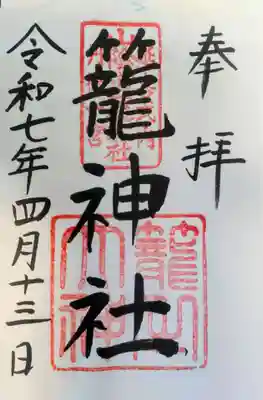 奉拝
籠神社
令和七年四月十三日